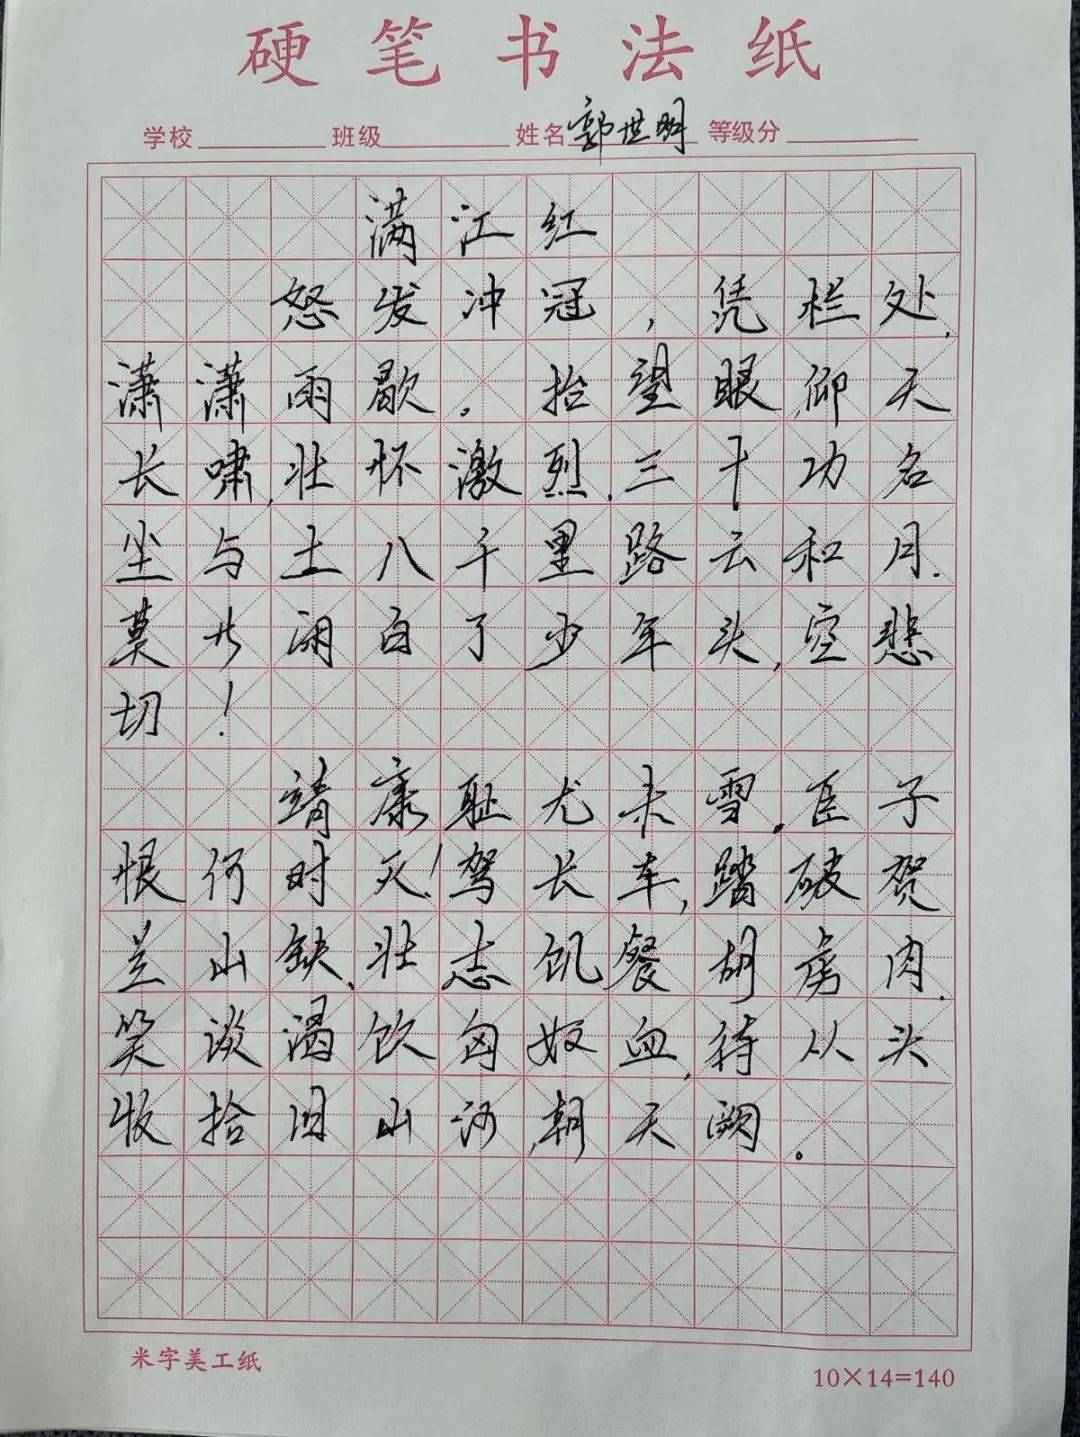 硬笔书法纸
学校 班级 姓名 郭世明 等级分
满江红
怒发冲冠，凭栏处，
潇潇雨歇。抬望眼，仰天
长啸，壮怀激烈.三十功名
尘与土八千里路云和月.
莫等闲白了少年头，空悲
切！
靖康耻尤未雪.臣子
恨何时灭！驾长车，踏破贺
兰山缺.壮志饥餐胡虏肉.
笑谈渴饮匈奴血，待从头
收拾旧山河，朝天阙。
米字美工纸
10×14=140